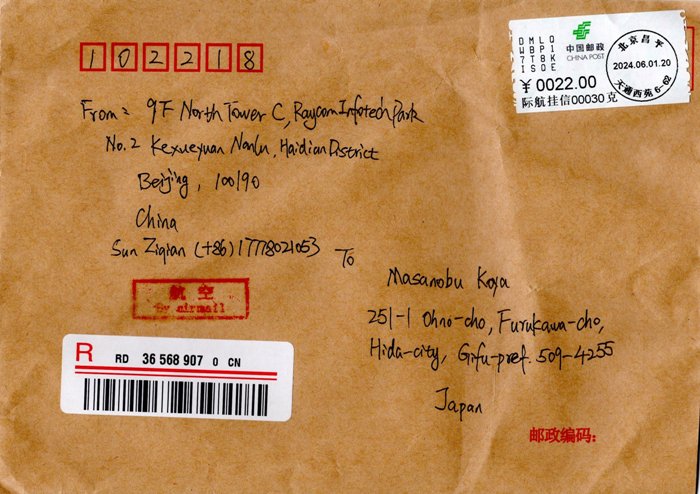 102218
DMLQ
WBP1
7T8K
ISOE
中国邮政
CHINA POST
¥0022.00
际航挂信00030克
北京昌平
2024.06.01.20
天通西苑6-02
From: 9F North Tower C, Raycom Infotech Park
No.2 Kexueyuan Nanlu, Haidian District
Beijing, 100190
China
Sun Ziqian (+86)17778021053
To
Masanobu Koya
251-1 Ohno-cho, Furukawa-cho,
Hida-city, Gifu-pref. 509-4255
Japan
航空
By airmail
R
RD 36 568 907 0 CN
邮政编码: